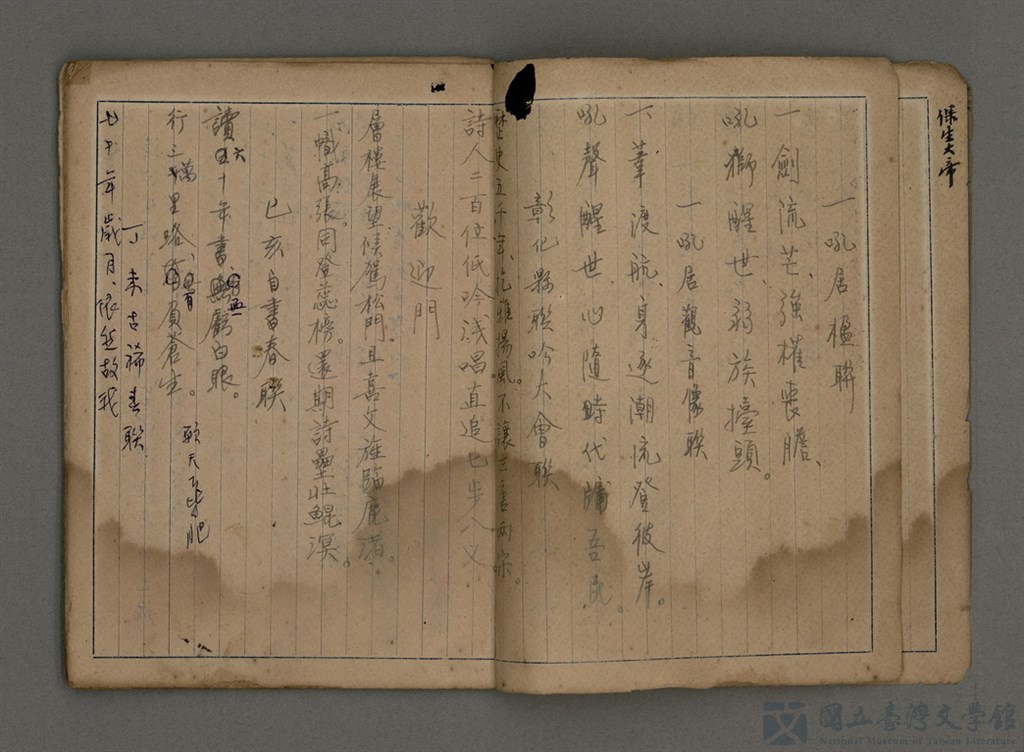 保生大帝
一吼居楹聯
一劍流芒、強權喪膽、
吼獅醒世、弱族擡頭。
一吼居觀音像聯
一、葦渡航、身逐潮流登彼岸。
吼聲醒世、心隨時代牖吾民。
彰化縣聯吟大會聯
歷史五千 揚風不讓
詩人二百位低吟浅唱直追七步八叉
歡迎門
層樓展望、候駕松門、且喜文旌臨鹿渚。
一幟高張、同登蕊榜。還期詩壘壯鯤溟。
己亥自書春聯
讀六十年書 白眼。
行三萬里路、 負蒼生。 願天 肥
丁未古稀春聯
七十年歲月、依然故我
國立臺灣文學館
National Museum of Taiwan Literature